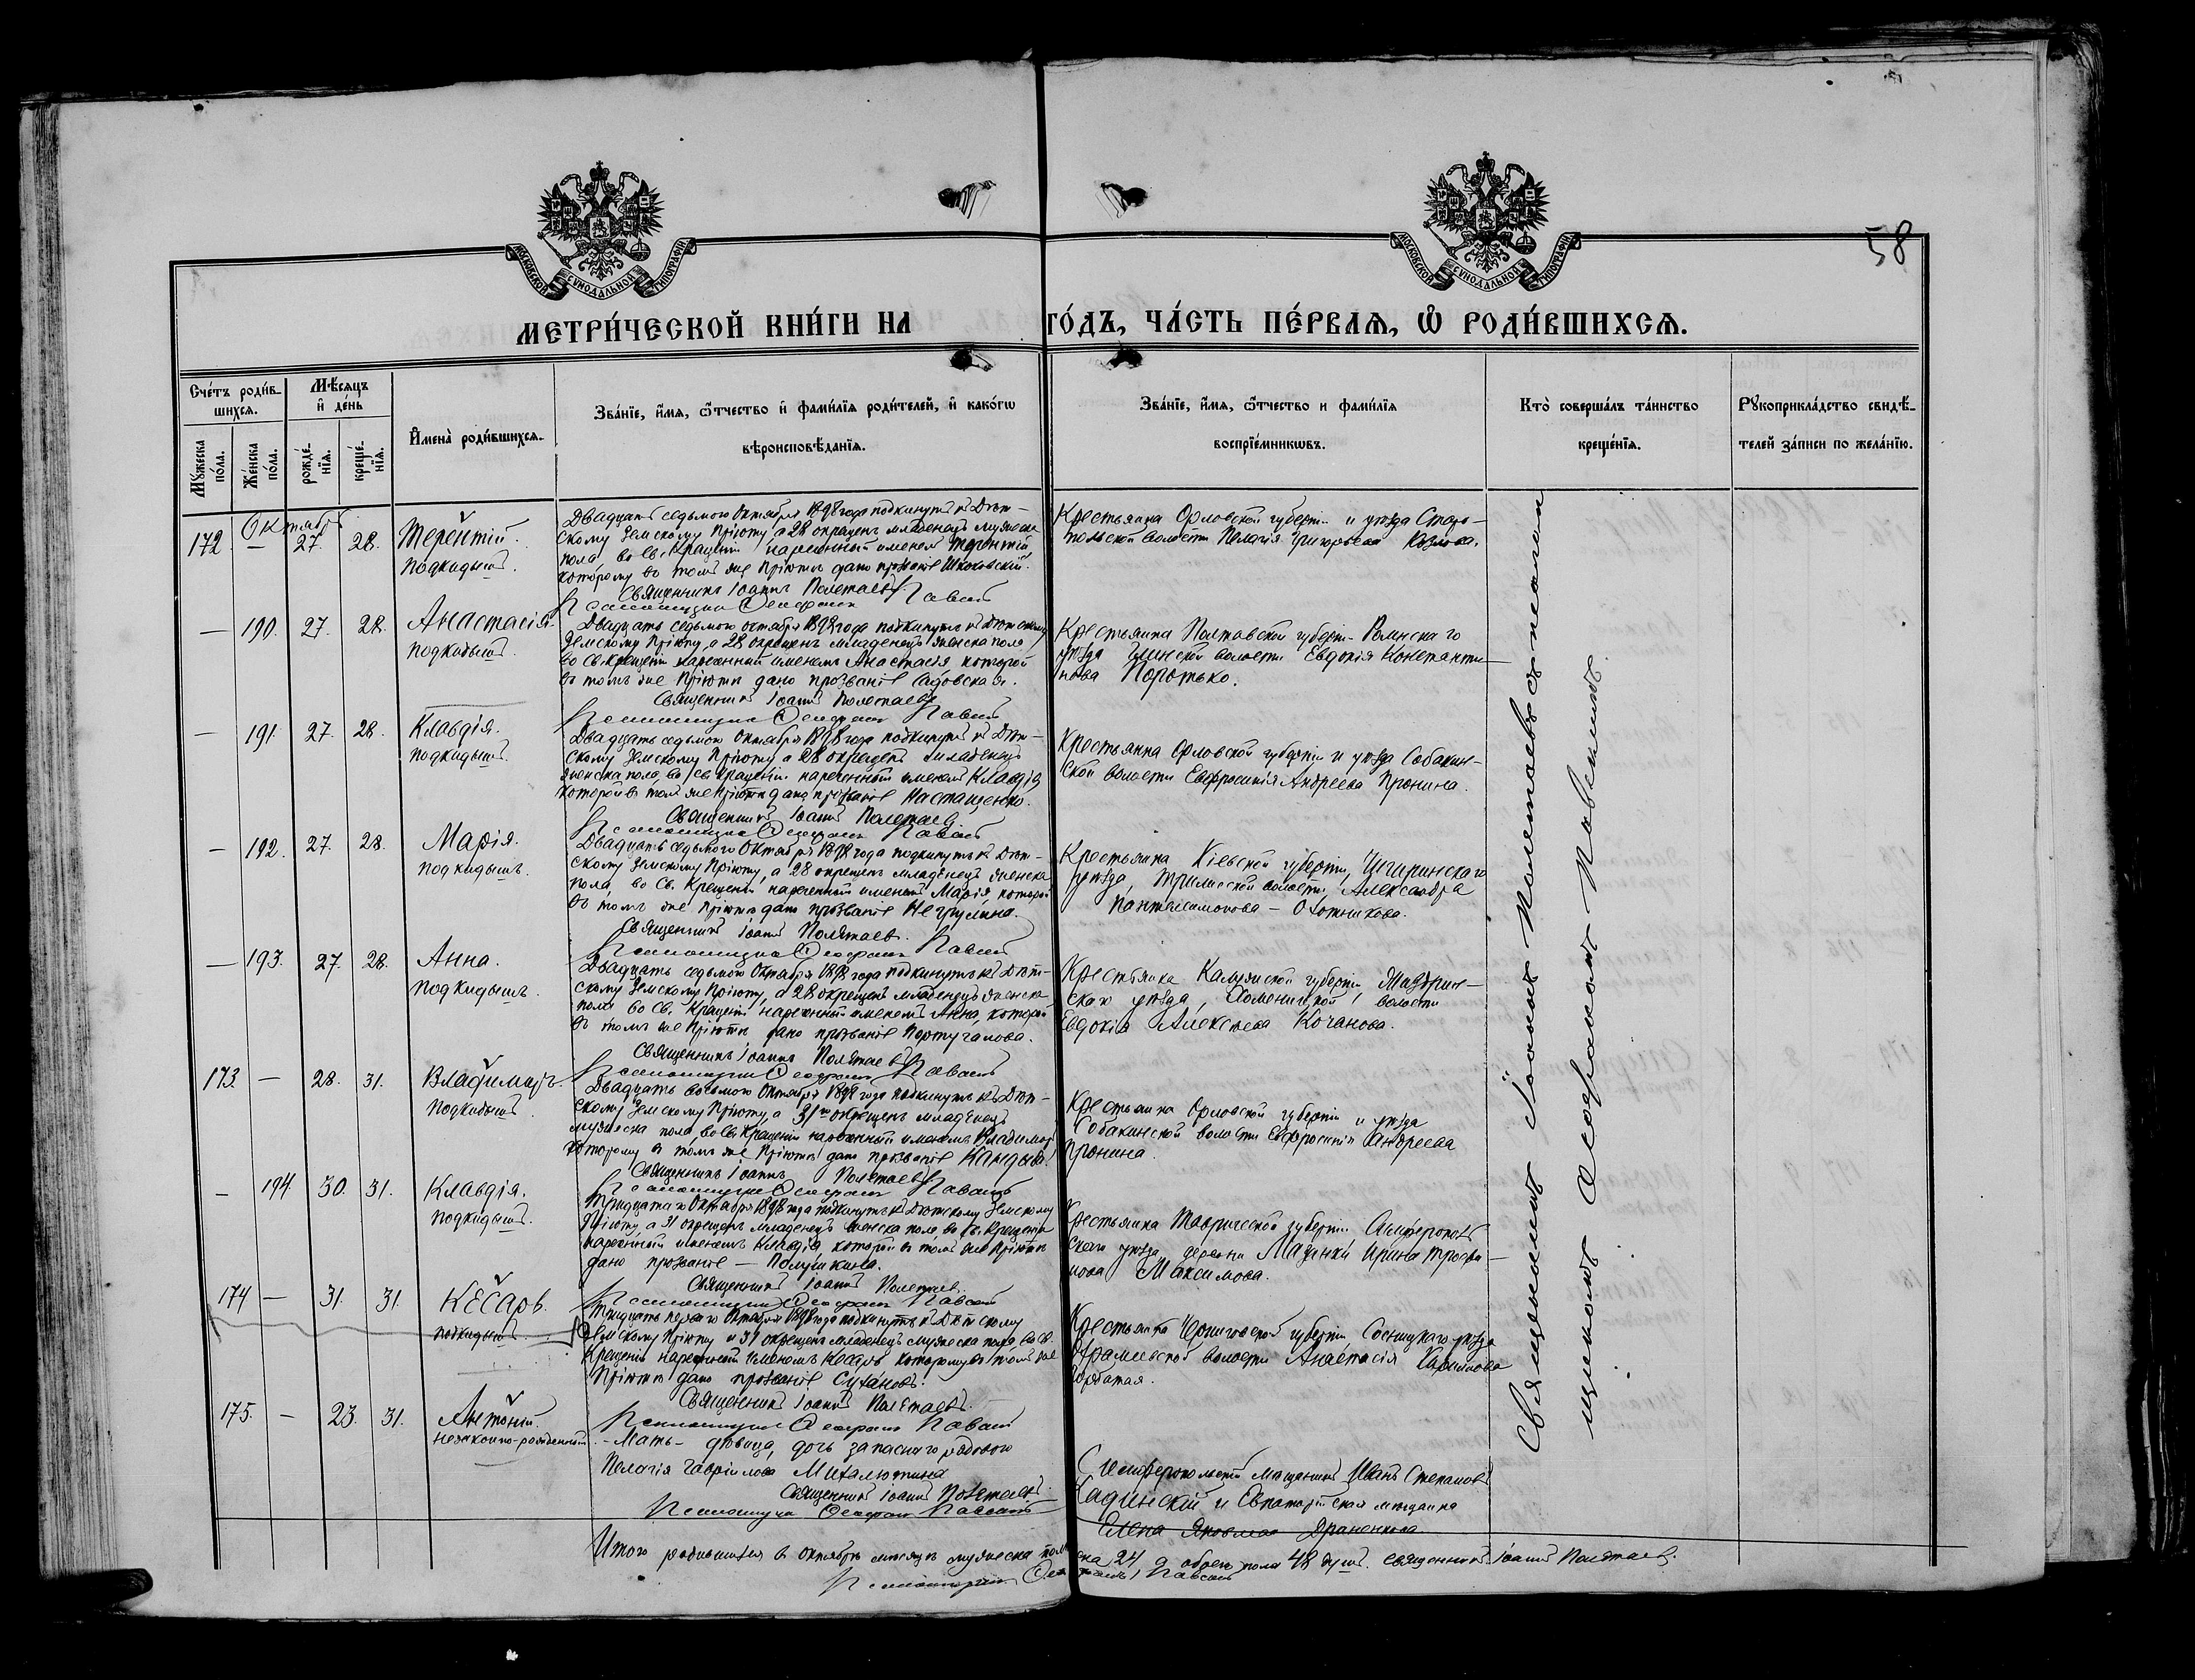 58
МОСКОВСКОЙ СѴНОДАЛЬНОЙ ТИПОГРАФІИ
МОСКОВСКОЙ СѴНОДАЛЬНОЙ ТИПОГРАФІИ
МЕТРИ́ЧЕСКОЙ КНИ́ГИ НА ГО́ДЪ, ЧА́СТЬ ПЕ́РВАѦ, Ѽ РОДИ́ВШИХСѦ.
Сче́тъ роди́в-
шихсѧ.
Мѣ́сѧцъ
и҆ де́нь
Мꙋ́жеска
по́ла.
Же́нска
по́ла.
рожде́-
нїѧ.
креще́-
нїѧ.
И҆мена̀ роди́вшихсѧ.
Зва́нїе, и҆́мѧ, ѻ҆́тчество и҆ фами́лїѧ роди́телей, и҆ како́гѡ
вѣроисповѣ́данїѧ.
Зва́нїе, и҆́мѧ, ѻ҆́тчество и фами́лїѧ
воспрїе́мникѡвъ.
Кто̀ соверша́лъ та́инство
креще́нїѧ.
Рꙋкоприкла́дство свидѣ́-
телей за́писи по жела́нїю.
Октябрь
172. — 27. 28. Терентій.
подкидышъ.
Двадцать седьмого Октября 1898 года подкинутъ къ Дѣт-
скому Земскому Пріюту, а 28 окрещенъ младенецъ мужеска
пола, во Св. Крещеніи нареченный именемъ Терентій,
которому въ томъ же Пріютѣ дано прозваніе
Священникъ Іоаннъ Полетаевъ.
Крестьянка Орловской губерніи и уѣзда
волости Пелагія Григорьева Козлова.
— 190. 27. 28. Анастасія.
подкидышъ.
Двадцать седьмого октября 1898 года подкинутъ къ Дѣтскому
Земскому Пріюту, а 28 окрещенъ младенецъ женска пола,
во Св. Крещеніи нареченный именемъ Анастасія, которой
въ томъ же Пріютѣ дано прозваніе Садовская.
Священникъ Іоаннъ Полетаевъ
Крестьянка Полтавской губерніи Роменскаго
уѣзда Глинской волости Евдокія Константи-
нова Коротько.
— 191. 27. 28. Клавдія.
подкидышъ.
Двадцать седьмого Октября 1898 года подкинутъ къ Дѣт-
скому Земскому Пріюту, а 28 окрещенъ младенецъ
женска пола, во Св. Крещеніи нареченный именемъ Клавдія,
которой въ томъ же Пріютѣ дано прозваніе Настащенко.
Священникъ Іоаннъ Полетаевъ
Крестьянка Орловской губерніи и уѣзда Собакин-
ской волости Евфросинія Андреева Пронина.
— 192. 27. 28. Марія.
подкидышъ.
Двадцать седьмого Октября 1898 года подкинутъ къ Дѣт-
скому Земскому Пріюту, а 28 окрещенъ младенецъ женска
пола, во Св. Крещеніи нареченный именемъ Марія, которой
въ томъ же Пріютѣ дано прозваніе
Священникъ Іоаннъ Полетаевъ.
Крестьянка Кіевской губерніи, Чигиринскаго
уѣзда, волости, Александра
Пантелимонова — Охотникова.
— 193. 27. 28. Анна.
подкидышъ.
Двадцать седьмого Октября 1898 года подкинутъ къ Дѣт-
скому Земскому Пріюту, а 28 окрещенъ младенецъ женска
пола во Св. Крещеніи нареченный именемъ Анна, которой
въ томъ же Пріютѣ дано прозваніе Португалова.
Священникъ Іоаннъ Полетаевъ
Крестьянка Калужской губерніи
скаго уѣзда, волости
Евдокія Алексѣева Кочанова.
173. — 28. 31. Владимиръ
подкидышъ.
Двадцать восьмого Октября 1898 года подкинутъ къ Дѣт-
скому Земскому Пріюту, а 31го окрещенъ младенецъ
мужеска пола, во Св. Крещеніи нареченный именемъ Владимиръ
которому въ томъ же Пріютѣ дано прозваніе
Священникъ Іоаннъ Полетаевъ
Крестьянка Орловской губерніи и уѣзда
Собакинской волости Евфросинія Андреева
Пронина.
— 194. 30. 31. Клавдія.
подкидышъ.
Тридцатаго Октября 1898 года подкинутъ къ Дѣтскому Земскому
Пріюту, а 31 окрещенъ младенецъ женска пола, во Св. Крещеніи
нареченный именемъ Клавдія, которой въ томъ же Пріютѣ
дано прозваніе — Полушкина.
Священникъ Іоаннъ Полетаевъ.
Крестьянка Таврической губерніи, Симферополь
скаго уѣзда, деревни Мазанки Ирина Трофи-
мова Максимова.
174 — 31. 31. Кесарь.
подкидышъ.
Тридцать перваго Октября 1898 года подкинутъ къ Дѣтскому
Земскому Пріюту и 31 окрещенъ младенецъ мужеска пола, во Св.
Крещеніи нареченный именемъ Кесарь которому въ томъ же
Пріютѣ дано прозваніе Сухановъ.
Священникъ Іоаннъ Полетаевъ.
Крестьянка Черниговской губерніи Сосницкаго уѣзда
волости Анастасія
Горбатая.
175. — 23. 31. Антоній.
незаконно-рожденный.
Мать — дѣвица, дочь запаснаго рядового
Пелагія Гавріилова Михалютина
Священникъ Іоаннъ Полетаевъ.
Симферопольскій мѣщанинъ Иванъ Степановъ
и Евпаторійская мѣщанка
Елена Яковлева
Священникъ Іоаннъ Полетаевъ съ псалом-
щикомъ Ѳеофаномъ
Итого родившихся въ Октябрѣ мѣсяцѣ мужеска пола 24 а обоего пола 48 душъ. Священникъ Іоаннъ Полетаевъ.